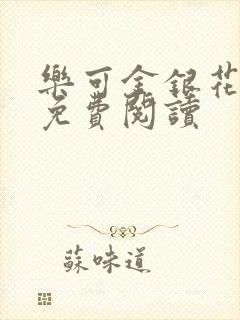 樂可金銀花
免費閱讀
蘇味道